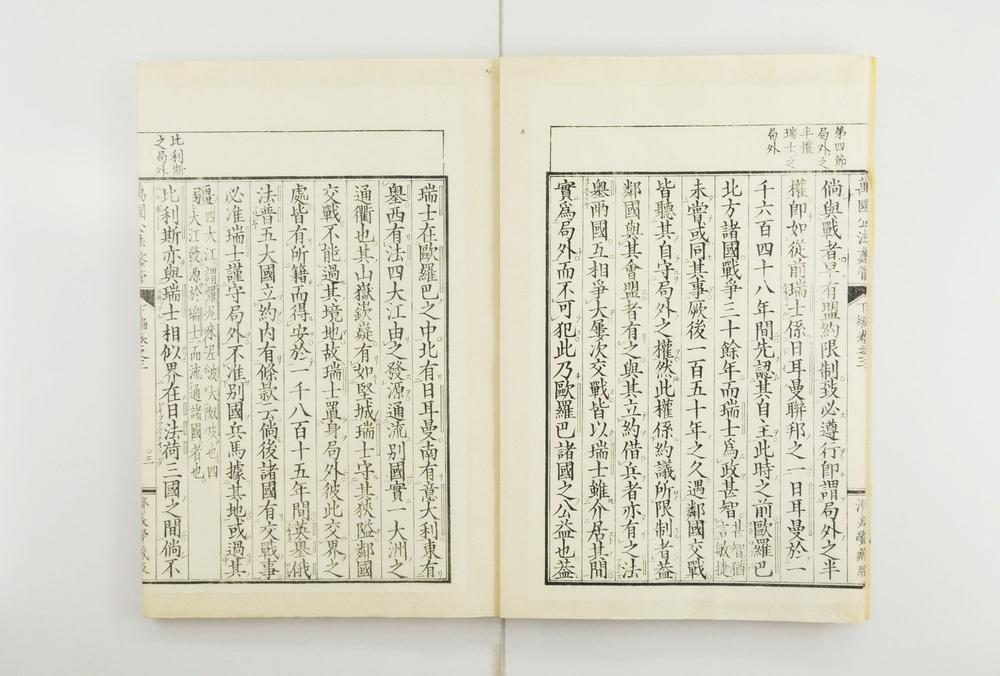 第四節
局外之
半權
瑞士之
局外
倘與戰者早有盟約限制致必遵行卽謂局外之半
權卽如從前瑞士係日耳曼聯邦之一日耳曼於一
千六百四十八年間先認其自主此時之前歐羅巴
北方諸國戰爭三十餘年而瑞士爲政甚智甚智猶言敏捷
未嘗或同其事厥後一百五十年之久遇鄰國交戰
皆聽其自守局外之權然此權係約議所限制者蓋
鄰國與其會盟者有之與其立約借兵者亦有之法
墺兩國互相爭大屢次交戰皆以瑞士雖介居其間
實爲局外而不可犯此乃歐羅巴諸國之公益也蓋
瑞士在歐羅巴之中北有日耳曼南有意大利東有
墺西有法四大江由之發源通流別國實一大洲之
通衢也其山嶽嶔嶷有如堅城瑞士守其狹隘鄰國
交戰不能過其境地故瑞士置身局外彼此交界之
處皆有所籍而得安於一千八百十五年間英墺俄
法普五大國立約內有條款云倘後諸國有交戰事
必准瑞士謹守局外不准別國兵馬據其地或過其
疆四大江謂
大江發源於瑞士而流通諸國者也
比利斯
之局外
比利斯亦與瑞士相似界在日法荷三國之間倘不